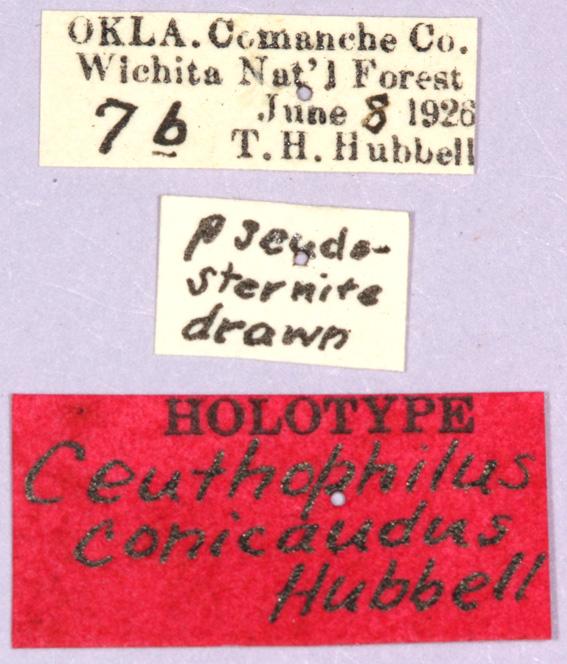 OKLA. Comanche Co.
Wichita Nat'l Forest
June 8 1926
7b T. H. Hubbell
pseudo-
sternite
drawn
HOLOTYPE
Ceuthophilus
conicaudus
Hubbell